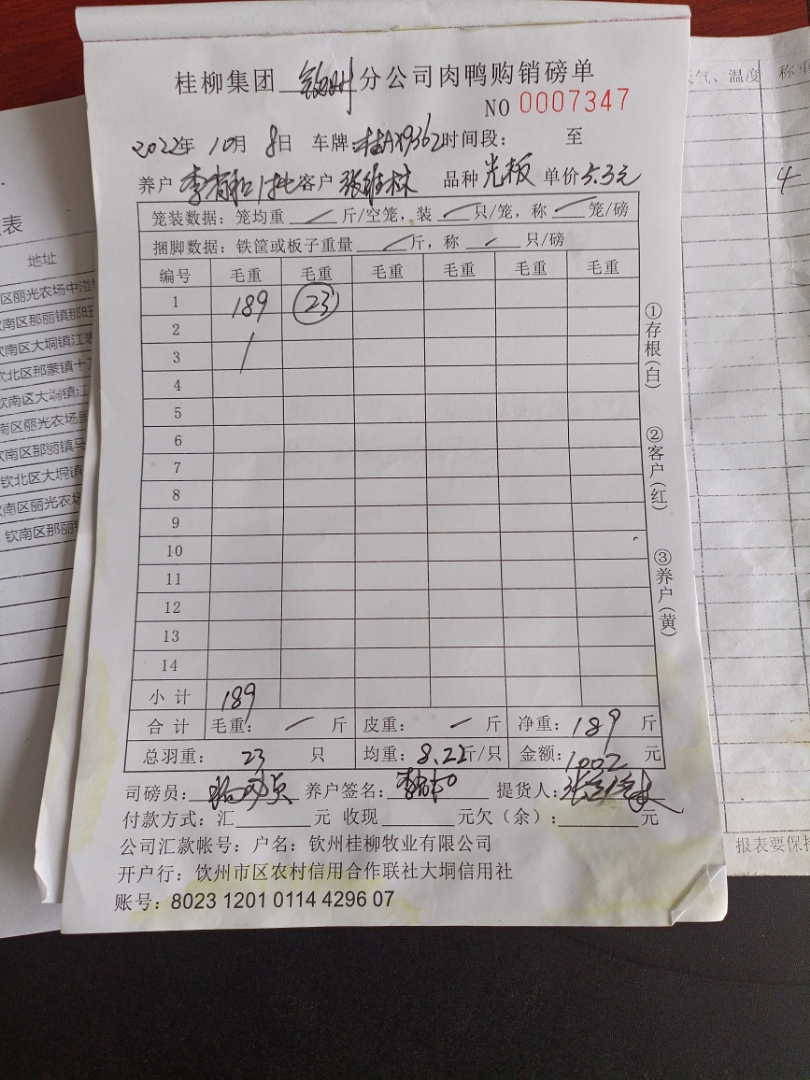 桂柳集团 钦州 分公司肉鸭购销磅单
NO 0007347
2022年 10月 8日 车牌: 桂A 9362 时间段: 至
养户 李 和 客户 张 林 品种 光板 单价 5.3元
笼装数据: 笼均重 / 斤/空笼, 装 / 只/笼, 称 / 笼/磅
捆脚数据: 铁筐或板子重量 / 斤, 称 / 只/磅
编号 毛重 毛重 毛重 毛重 毛重 毛重
1 189 23
2
3
4
5
6
7
8
9
10
11
12
13
14
小计 189
合计 毛重: / 斤 皮重: / 斤 净重: 189 斤
总羽重: 23 只 均重: 8.22斤/只 金额: 1002 元
司磅员: 养户签名: 提货人:
付款方式: 汇 元 收现 元欠（余）: 元
公司汇款帐号: 户名: 钦州桂柳牧业有限公司
开户行: 饮州市区农村信用合作联社大垌信用社
账号: 8023 1201 0114 4296 07
①存根(白)
②客户(红)
③养户(黄)
表
地址
区丽光农场中
南区那丽镇那旺
南区大垌镇江
钦北区那蒙镇十
钦南区大垌镇江
南区丽光农场
南区那丽镇马
钦北区大垌镇
钦南区丽光农场
钦南区那丽
气、温度 称重
4
报表要保持